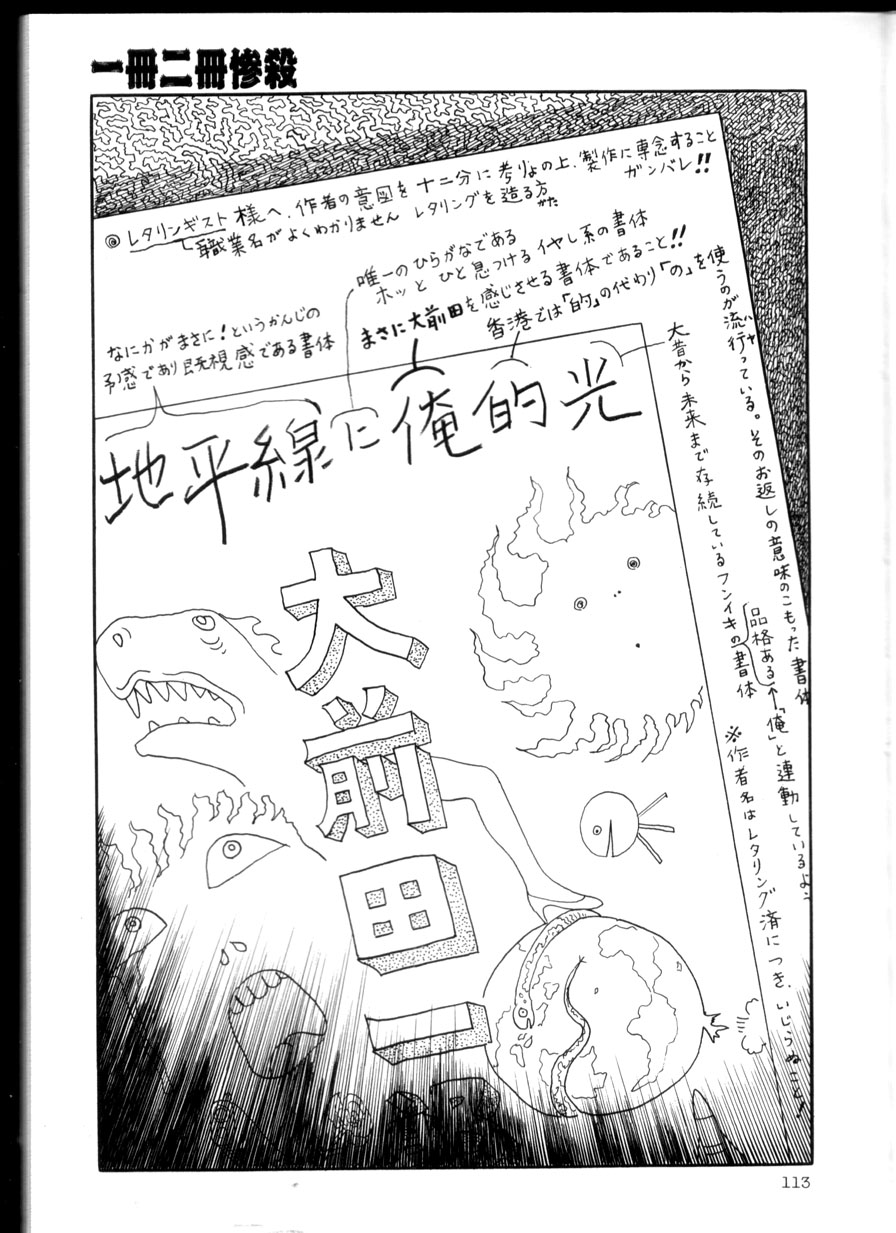 一冊二冊惨殺
◎レタリンギスト様へ、作者の意図を十二分に考りょの上、製作に専念すること
ガンバレ!!
職業名がよくわかりません レタリングを造る方
がた
唯一のひらがなである
ホッとひと息つけるイヤし系の書体
まさに大前田を感じさせる書体であること!!
香港では「的」の代わり「の」を使うのが流行っている。そのお返しの意味のこもった書体
ハヤ
品格ある←「俺」と連動しているよ
なにかがまさに!というかんじの
予感であり既視感である書体
大昔から未来まで存続しているフンイキの書体
地平線に俺的光
※作者名はレタリング済につき、いじらぬこと!
大前田一
113